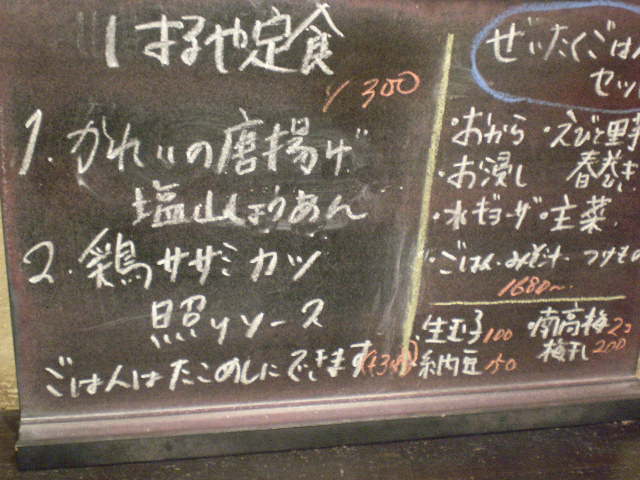 はるや定食
¥ 300
1. かれいの唐揚げ
塩山しょうあん
2. 鶏ササミカツ
照りソース
ごはんはたこめしにできます
ぜいたくごはん
セット
・おから ・えびと野菜
・お浸し 春巻き
・水ギョーザ ・主菜
・ごはん・みそ汁 つけもの
1680~
生玉子100
納豆150
・南高梅
梅干し200